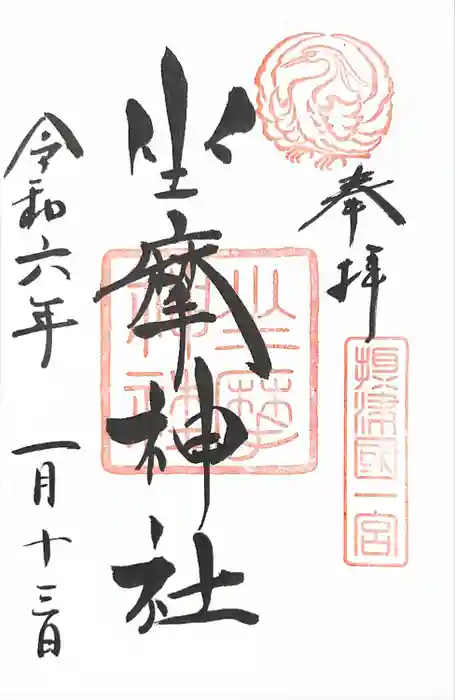 奉拝
摂津國一宮
坐摩神社
坐摩神社
令和六年 一月十三日